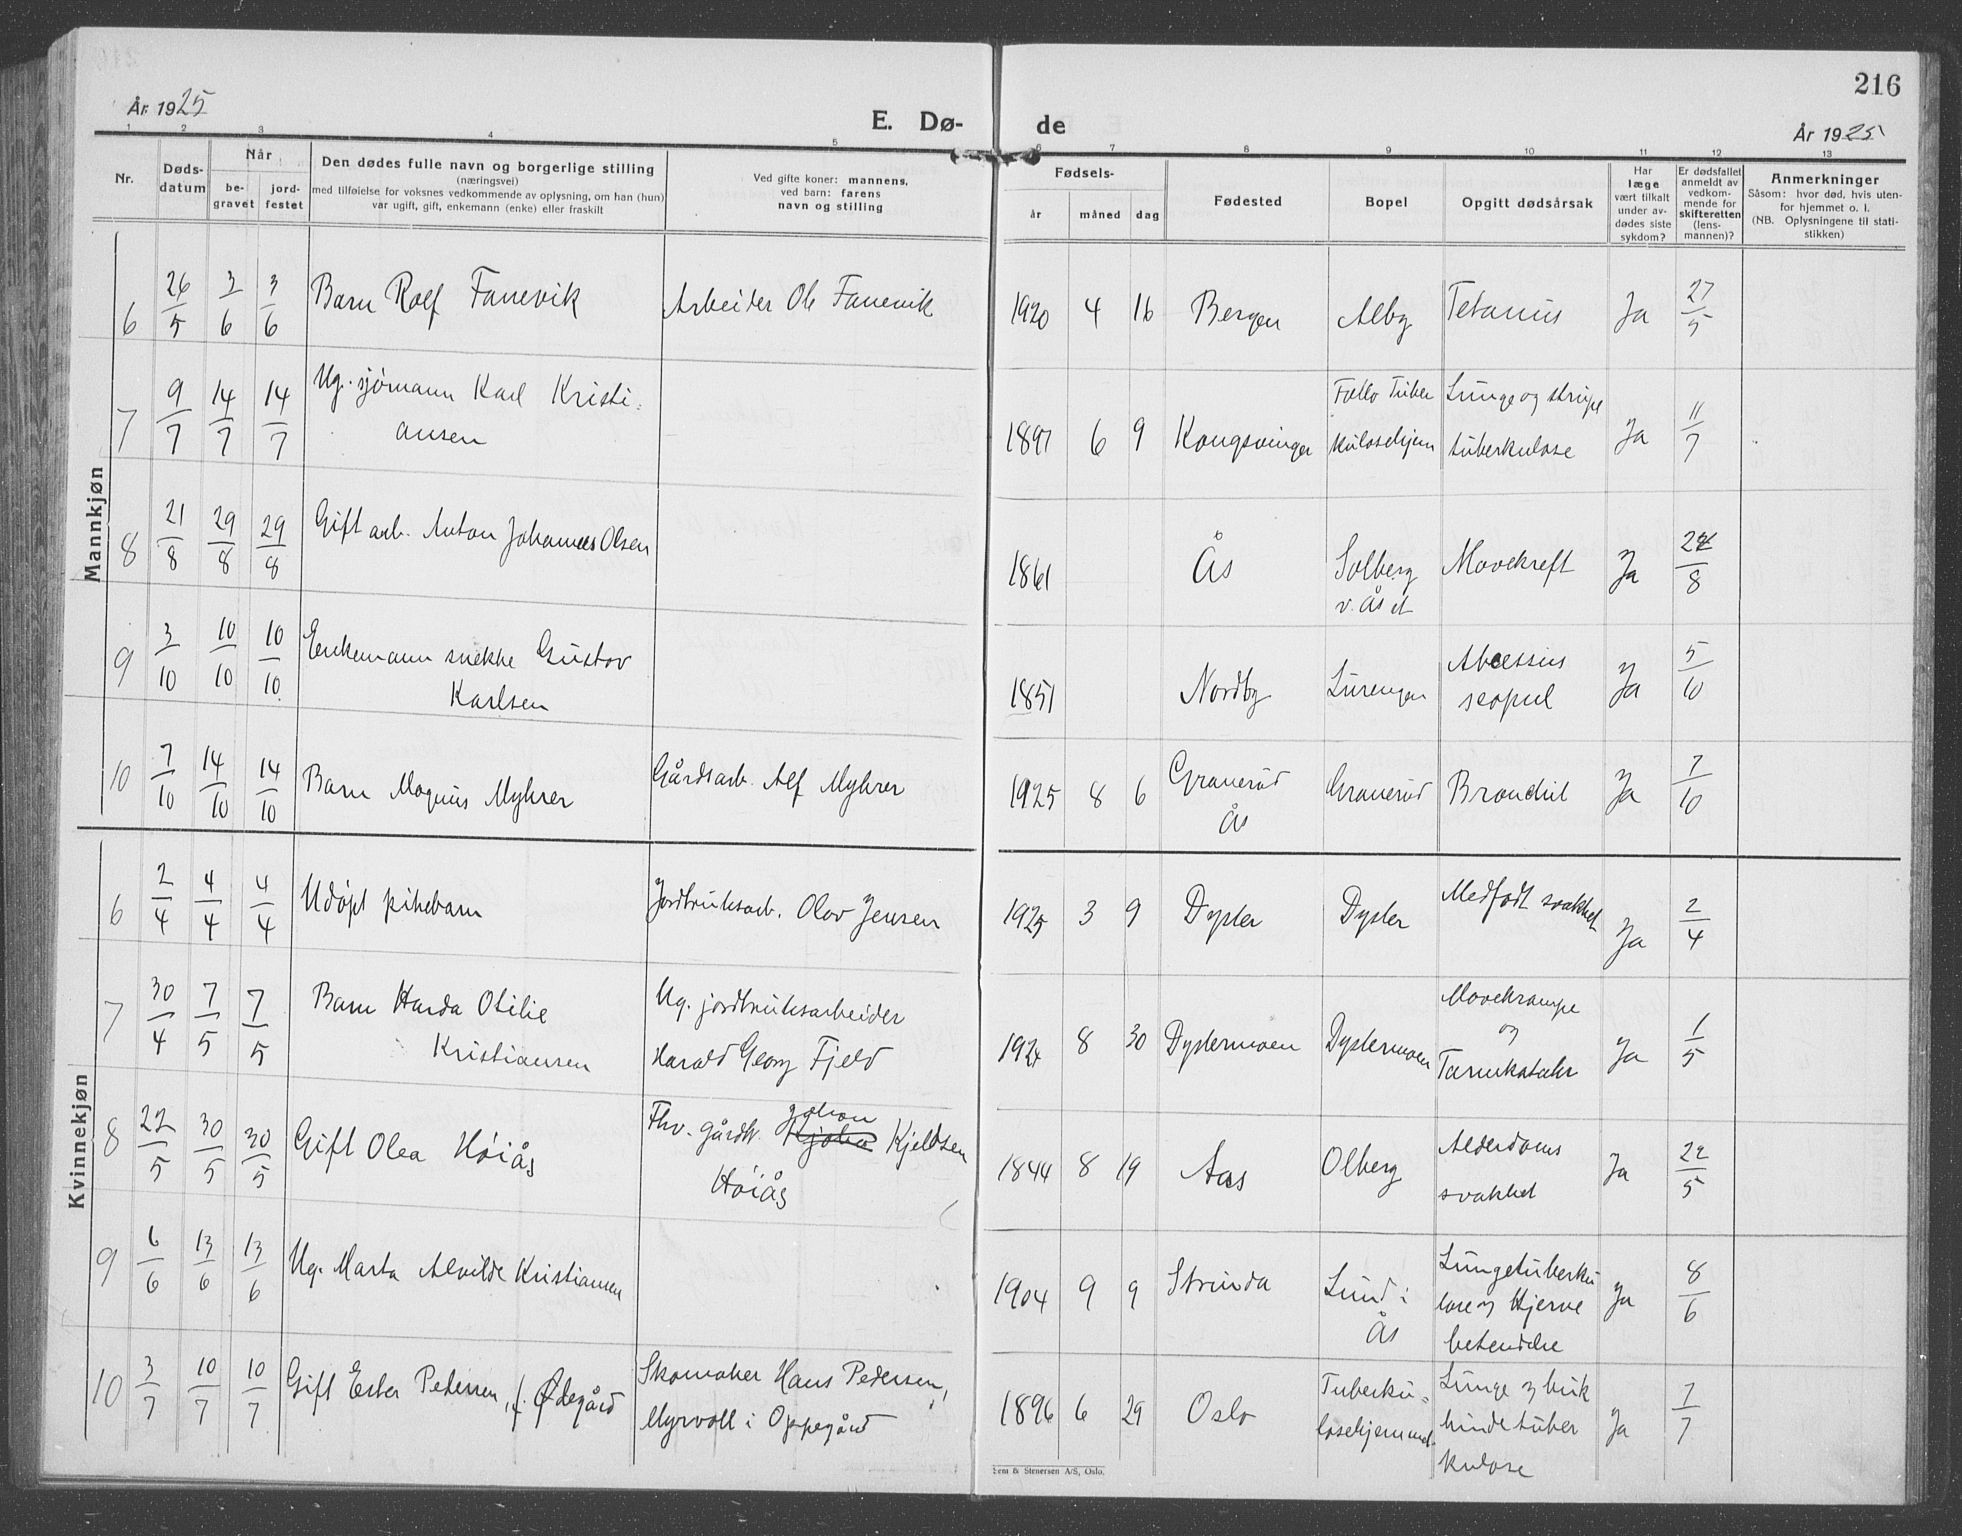 216
År. 1925
E. Dø-
de
År 1925
1 2 3 4 5 6 7 8 9 10 11 12 13
Nr.
Døds-
datum
Når
be-
gravet
jord-
festet
Den dødes fulle navn og borgerlige stilling
(næringsvei)
med tilføielse for voksnes vedkommende av oplysning, om han (hun)
var ugift, gift, enkemann (enke) eller fraskilt
Ved gifte koner: mannens,
ved barn: farens
navn og stilling
Fødsels-
år måned dag
Fødested
Bopel
Opgitt dødsårsak
Har
læge
vært tilkalt
under av-
dødes siste
sykdom?
Er dødsfallet
anmeldt av
vedkom-
mende for
skifteretten
(lens-
mannen)?
Anmerkninger
Såsom: hvor død, hvis uten-
for hjemmet o. l.
(NB. Oplysningene til stati-
stikken)
Mannkjøn
6 26/5 3/6 3/6 Barn Rolf Fanevik Arbeider Ole Fanevik 1920 4 16 Bergen Alby Tetanus Ja 27/5
7 9/7 14/7 14/7 Ug. sjömann Karl Kristi-
ansen 1897 6 9 Kongsvinger Follo Tuber
kulosehjem Lunge og strupe
tuberkulose Ja 11/7
8 21/8 29/8 29/8 Gift arb. Anton Johannes Olsen 1861 Ås Solberg
v. Ås st Mavekreft Ja 22/8
9 3/10 10/10 10/10 Enkemann snekke Gustav
Karlsen 1851 Nordby Lurengen Abcessus
scapul Ja 5/10
10 7/10 14/10 14/10 Barn Magnus Myhrer Gårdsarb. Alf Myhrer 1925 8 6 Granerud
Ås Granerud Bronchit Ja 7/10
Kvinnekjøn
6 2/4 4/4 4/4 Udöpt pikebarn Jordbruksarb. Olav Jensen 1925 3 9 Dyster Dyster Medfødt svakhet Ja 2/4
7 30/4 7/5 7/5 Barn Harda Otilie
Kristiansen Ug. jordbruksarbeider
Harald Georg Fjeld 1924 8 30 Dystermoen Dystermoen Mavekrampe
og
Tarmkatahr Ja 1/5
8 22/5 30/5 30/5 Gift Olea Höiås Fhv. gårdbr. Johan Kjeldsen
Höiås 1844 8 19 Aas Olberg Alderdoms
svakhet Ja 22/5
9 6/6 13/6 13/6 Ug. Marta Alvilde Kristiansen 1904 9 9 Strinda Lund i
Ås Lungetuberku
lose og Hjerne
betendelse Ja 8/6
10 3/7 10/7 10/7 Gift Ester Pedersen, f. Ødegård Skomaker Hans Pedersen,
Myrvoll i Oppegård 1896 6 29 Oslo Tuberku-
losehjemmet Lunge og buk
hindetuber
kulose Ja 7/7
Sem & Stenersen A/S, Oslo.